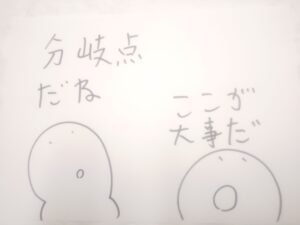 分岐点
だな
ここが
大事だ